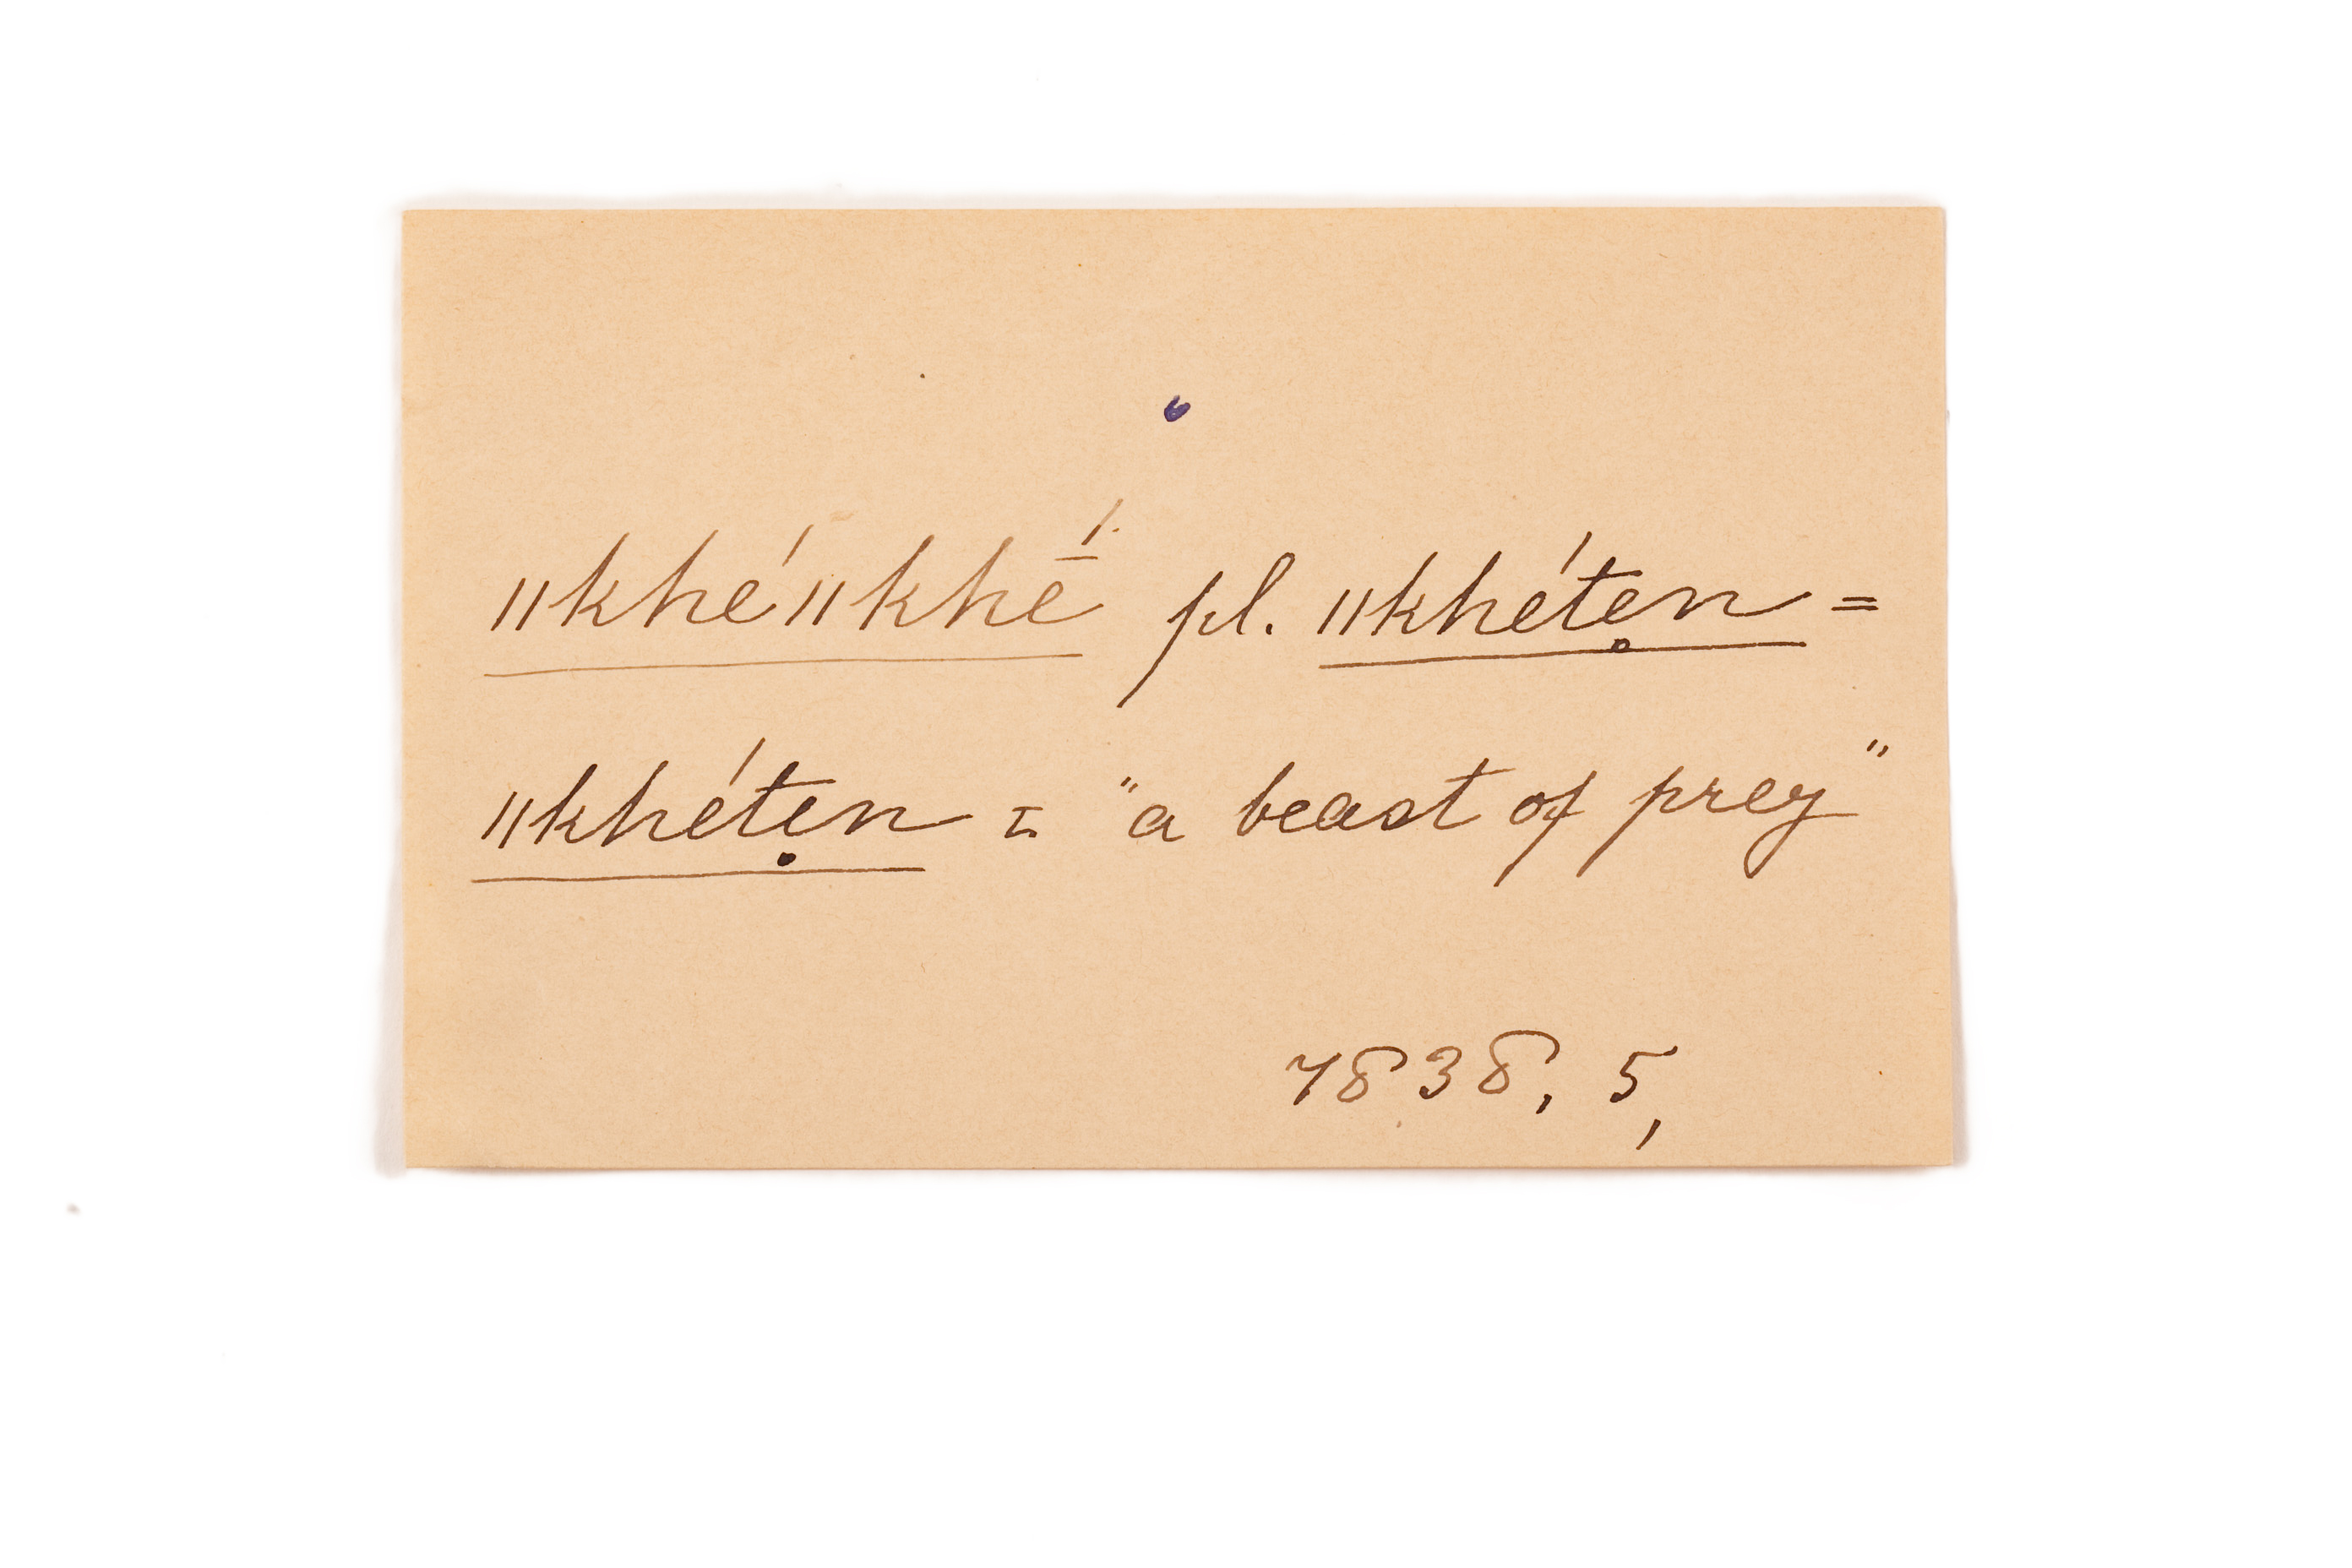 ǁkhéǁkhḗ pl. ǁkhétẹn =
ǁkhétẹn = "a beast of prey"
7838, 5,